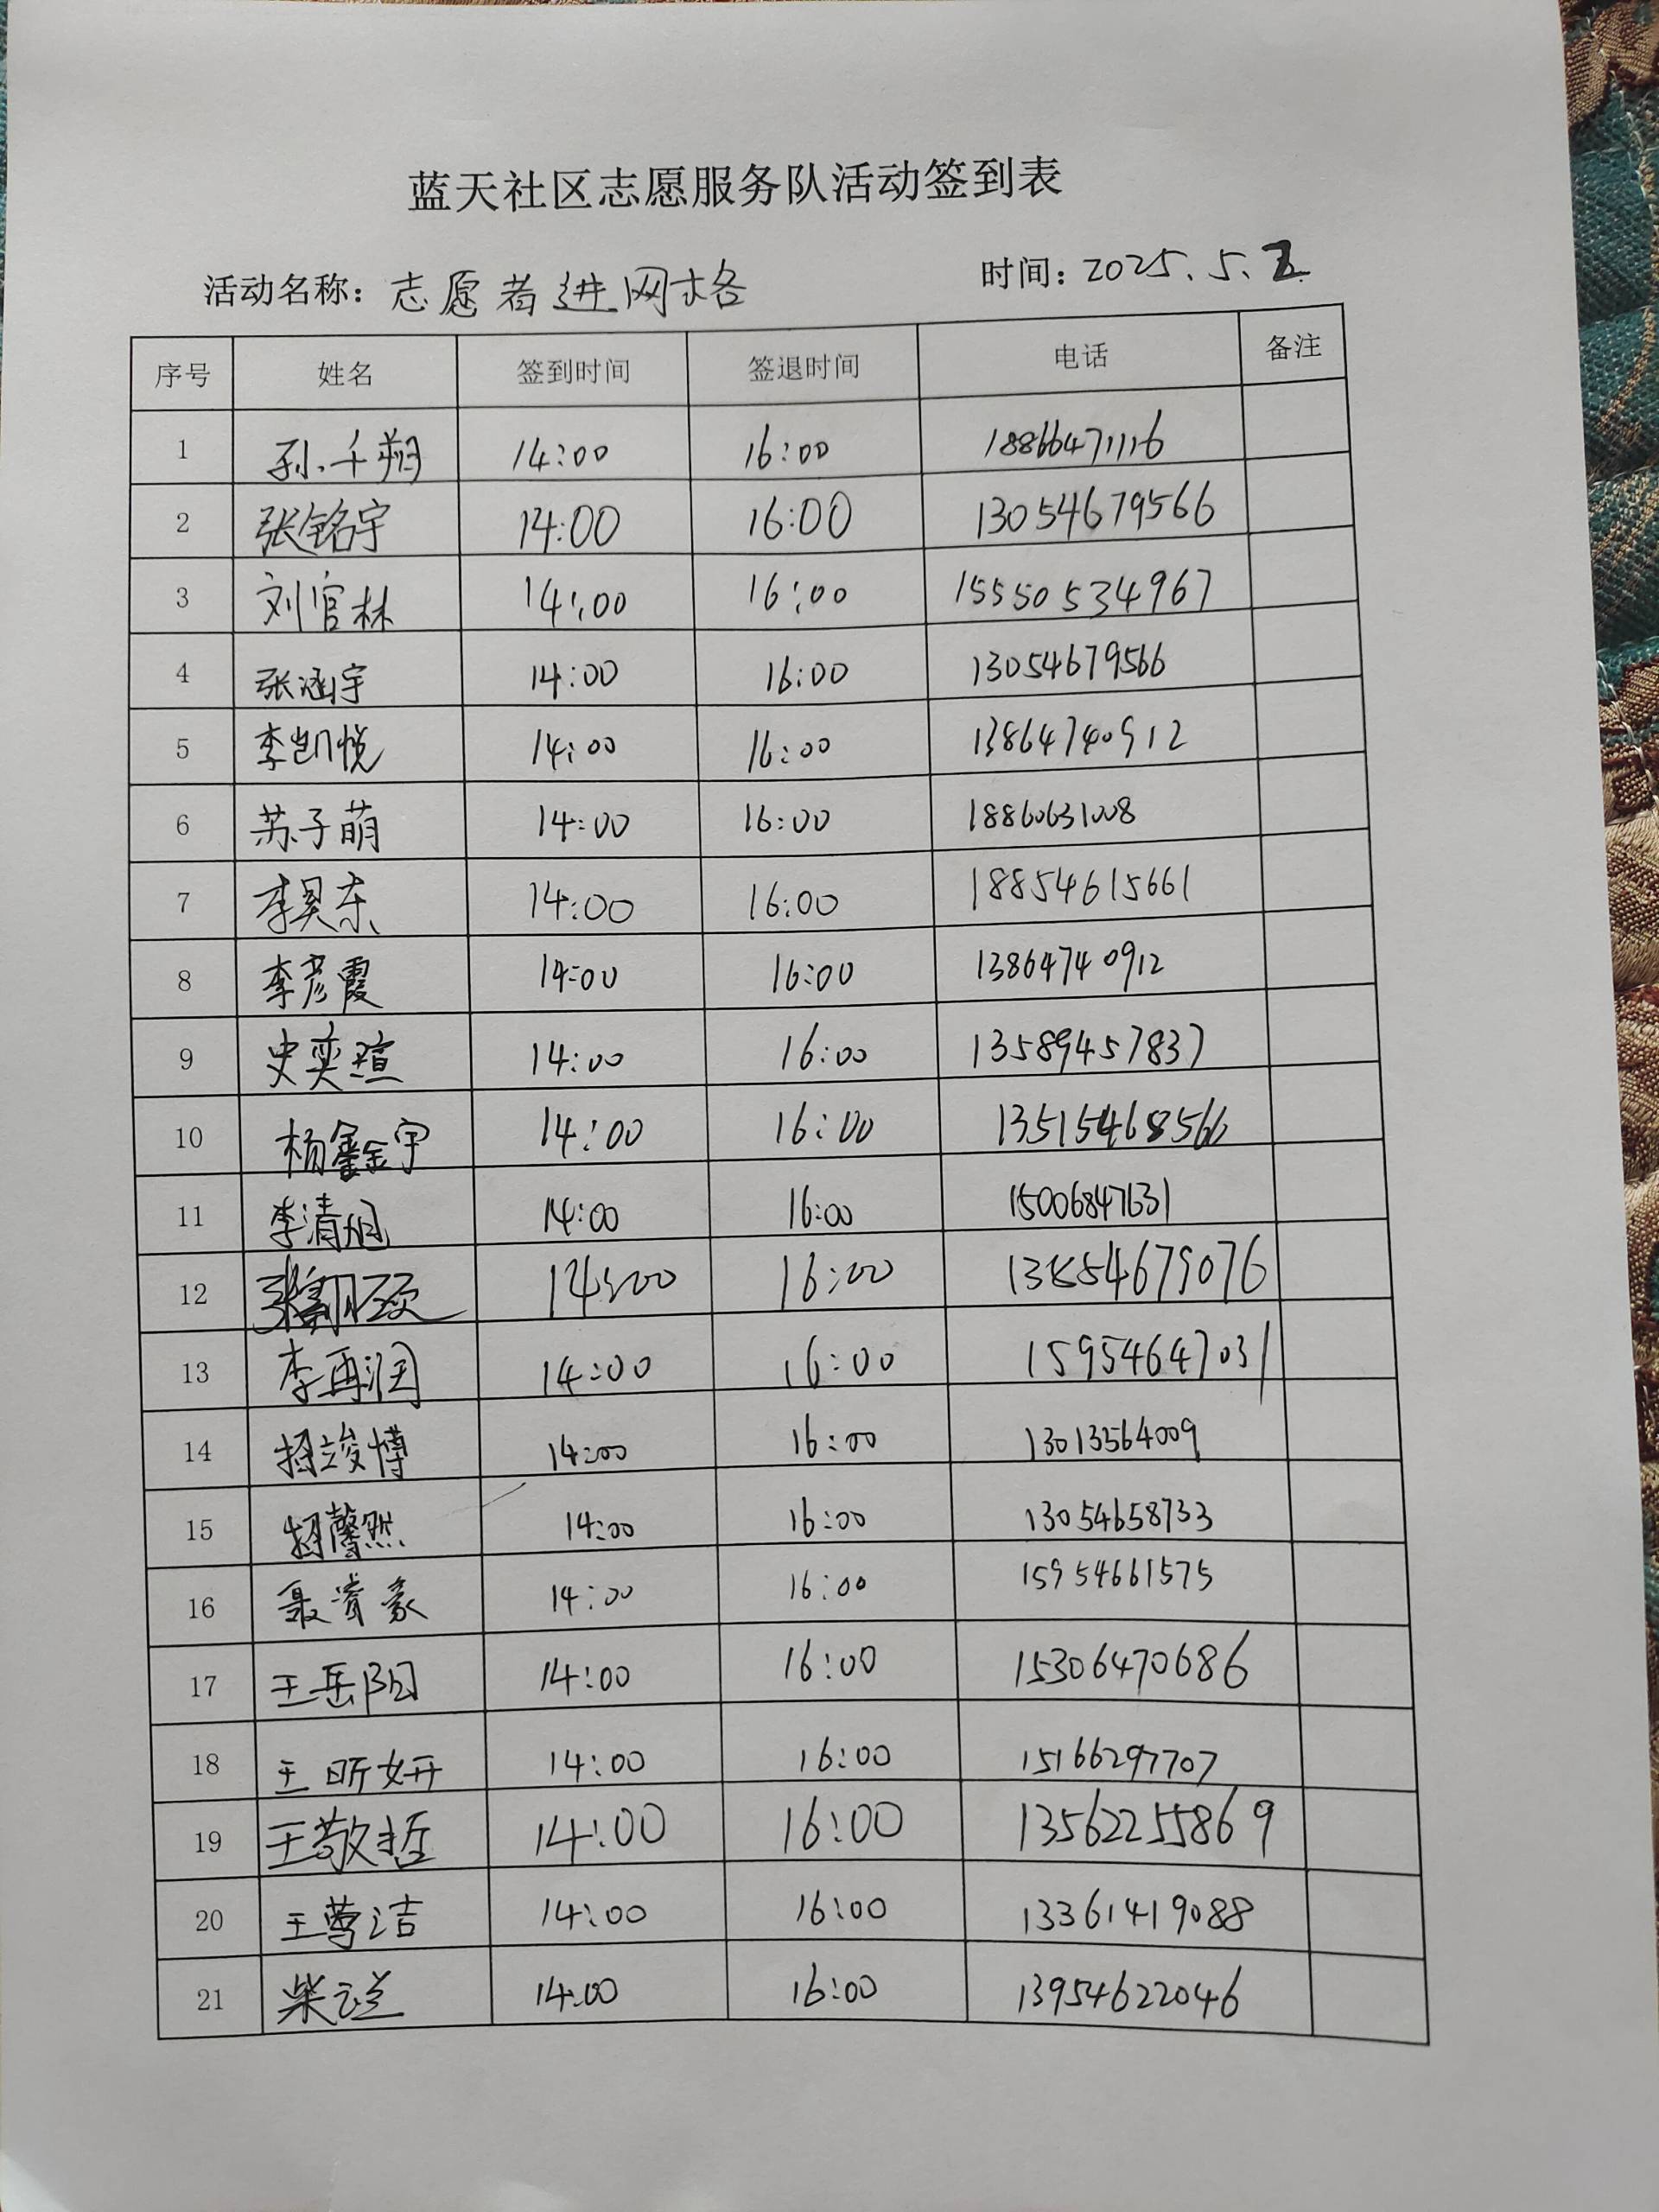 蓝天社区志愿服务队活动签到表
活动名称：志愿者进网格 时间：2025.5.2
序号 姓名 签到时间 签退时间 电话 备注
1 孙千朔 14:00 16:00 18866471116
2 张铭宇 14:00 16:00 13054679566
3 刘官林 14:00 16:00 15550534967
4 张涵宇 14:00 16:00 13054679566
5 李凯悦 14:00 16:00 13864740912
6 苏子萌 14:00 16:00 18860631008
7 李昊东 14:00 16:00 18854615661
8 李彦霞 14:00 16:00 13864740912
9 史奕瑄 14:00 16:00 13589457837
10 杨鑫宇 14:00 16:00 13515468566
11 李清旭 14:00 16:00 15006847631
12 14:00 16:00 13854679076
13 李再润 14:00 16:00 15954647031
14 杨竣博 14:00 16:00 13013564009
15 杨馨然 14:00 16:00 13054658733
16 14:00 16:00 15954661575
17 王岳阳 14:00 16:00 15306470686
18 王昕妍 14:00 16:00 15166297707
19 王敬哲 14:00 16:00 13562255869
20 14:00 16:00 13361419088
21 14:00 16:00 13954622046